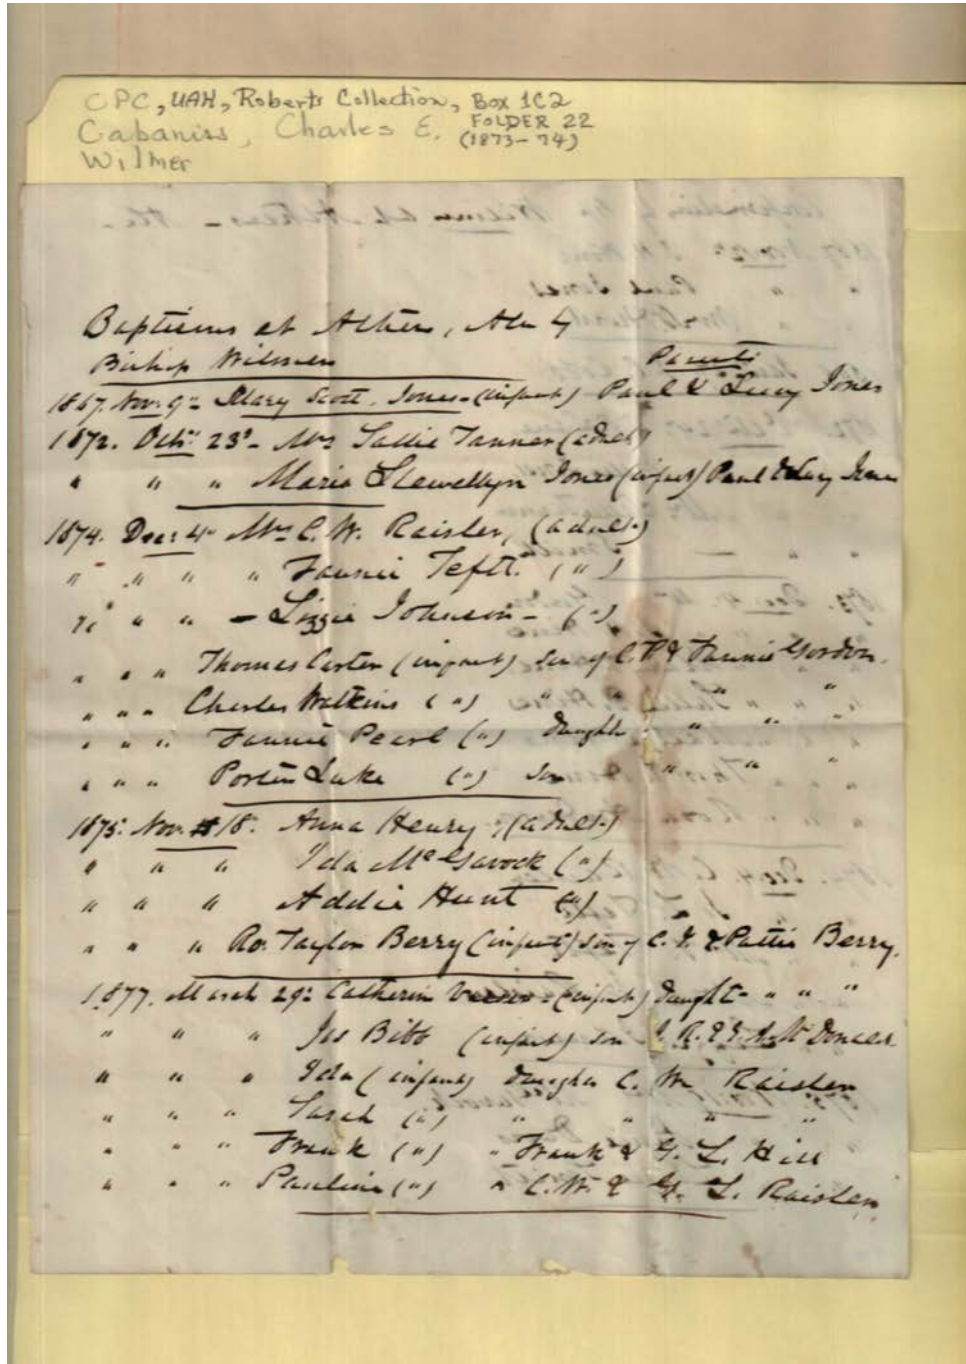 CPC, UAH, Roberts Collection, Box 1C2
FOLDER 22
Cabaniss, Charles E. (1873-74)
Wilmer
Baptisms at Athens, Ala by
Bishop Wilmer Parents
1867. Nov. 9" Mary Scott Jones - (infant) Paul & Lucy Jones
1872. Oct. 23d - Mrs Sallie Tanner (adult)
" " " Maria Llewellyn Jones (infant) Paul & Lucy Jones
1874. Dec: 4" Mrs C. W. Raisler, (adult.)
" " " " Fannie Teftt. (")
" " " - Lizzie Johnson - (")
" " " Thomas Carter (infant) son of C. P. & Fannie Gordon.
" " " Charles Watkins (") " " " "
" " " Fannie Pearl (") daughter " " "
" " " Porter Luke (") son " " "
1875. Nov. 18. Anna Henry, (adult.)
" " " Ida McGavock (")
" " " Addie Hunt (")
" " " Ro. Taylor Berry (infant) son of C. F. & Pattie Berry.
1877. March 29: Catherin - (infant) daught - " " "
" " " Jas Bibb (infant) son McDonald
" " " Ida (infant) daughter C. W. Raisler
" " " Sarah (") " " " "
" " " Frank (") " Frank & G. L. Hill
" " " Pauline (") " C. W. & G. L. Raisler.